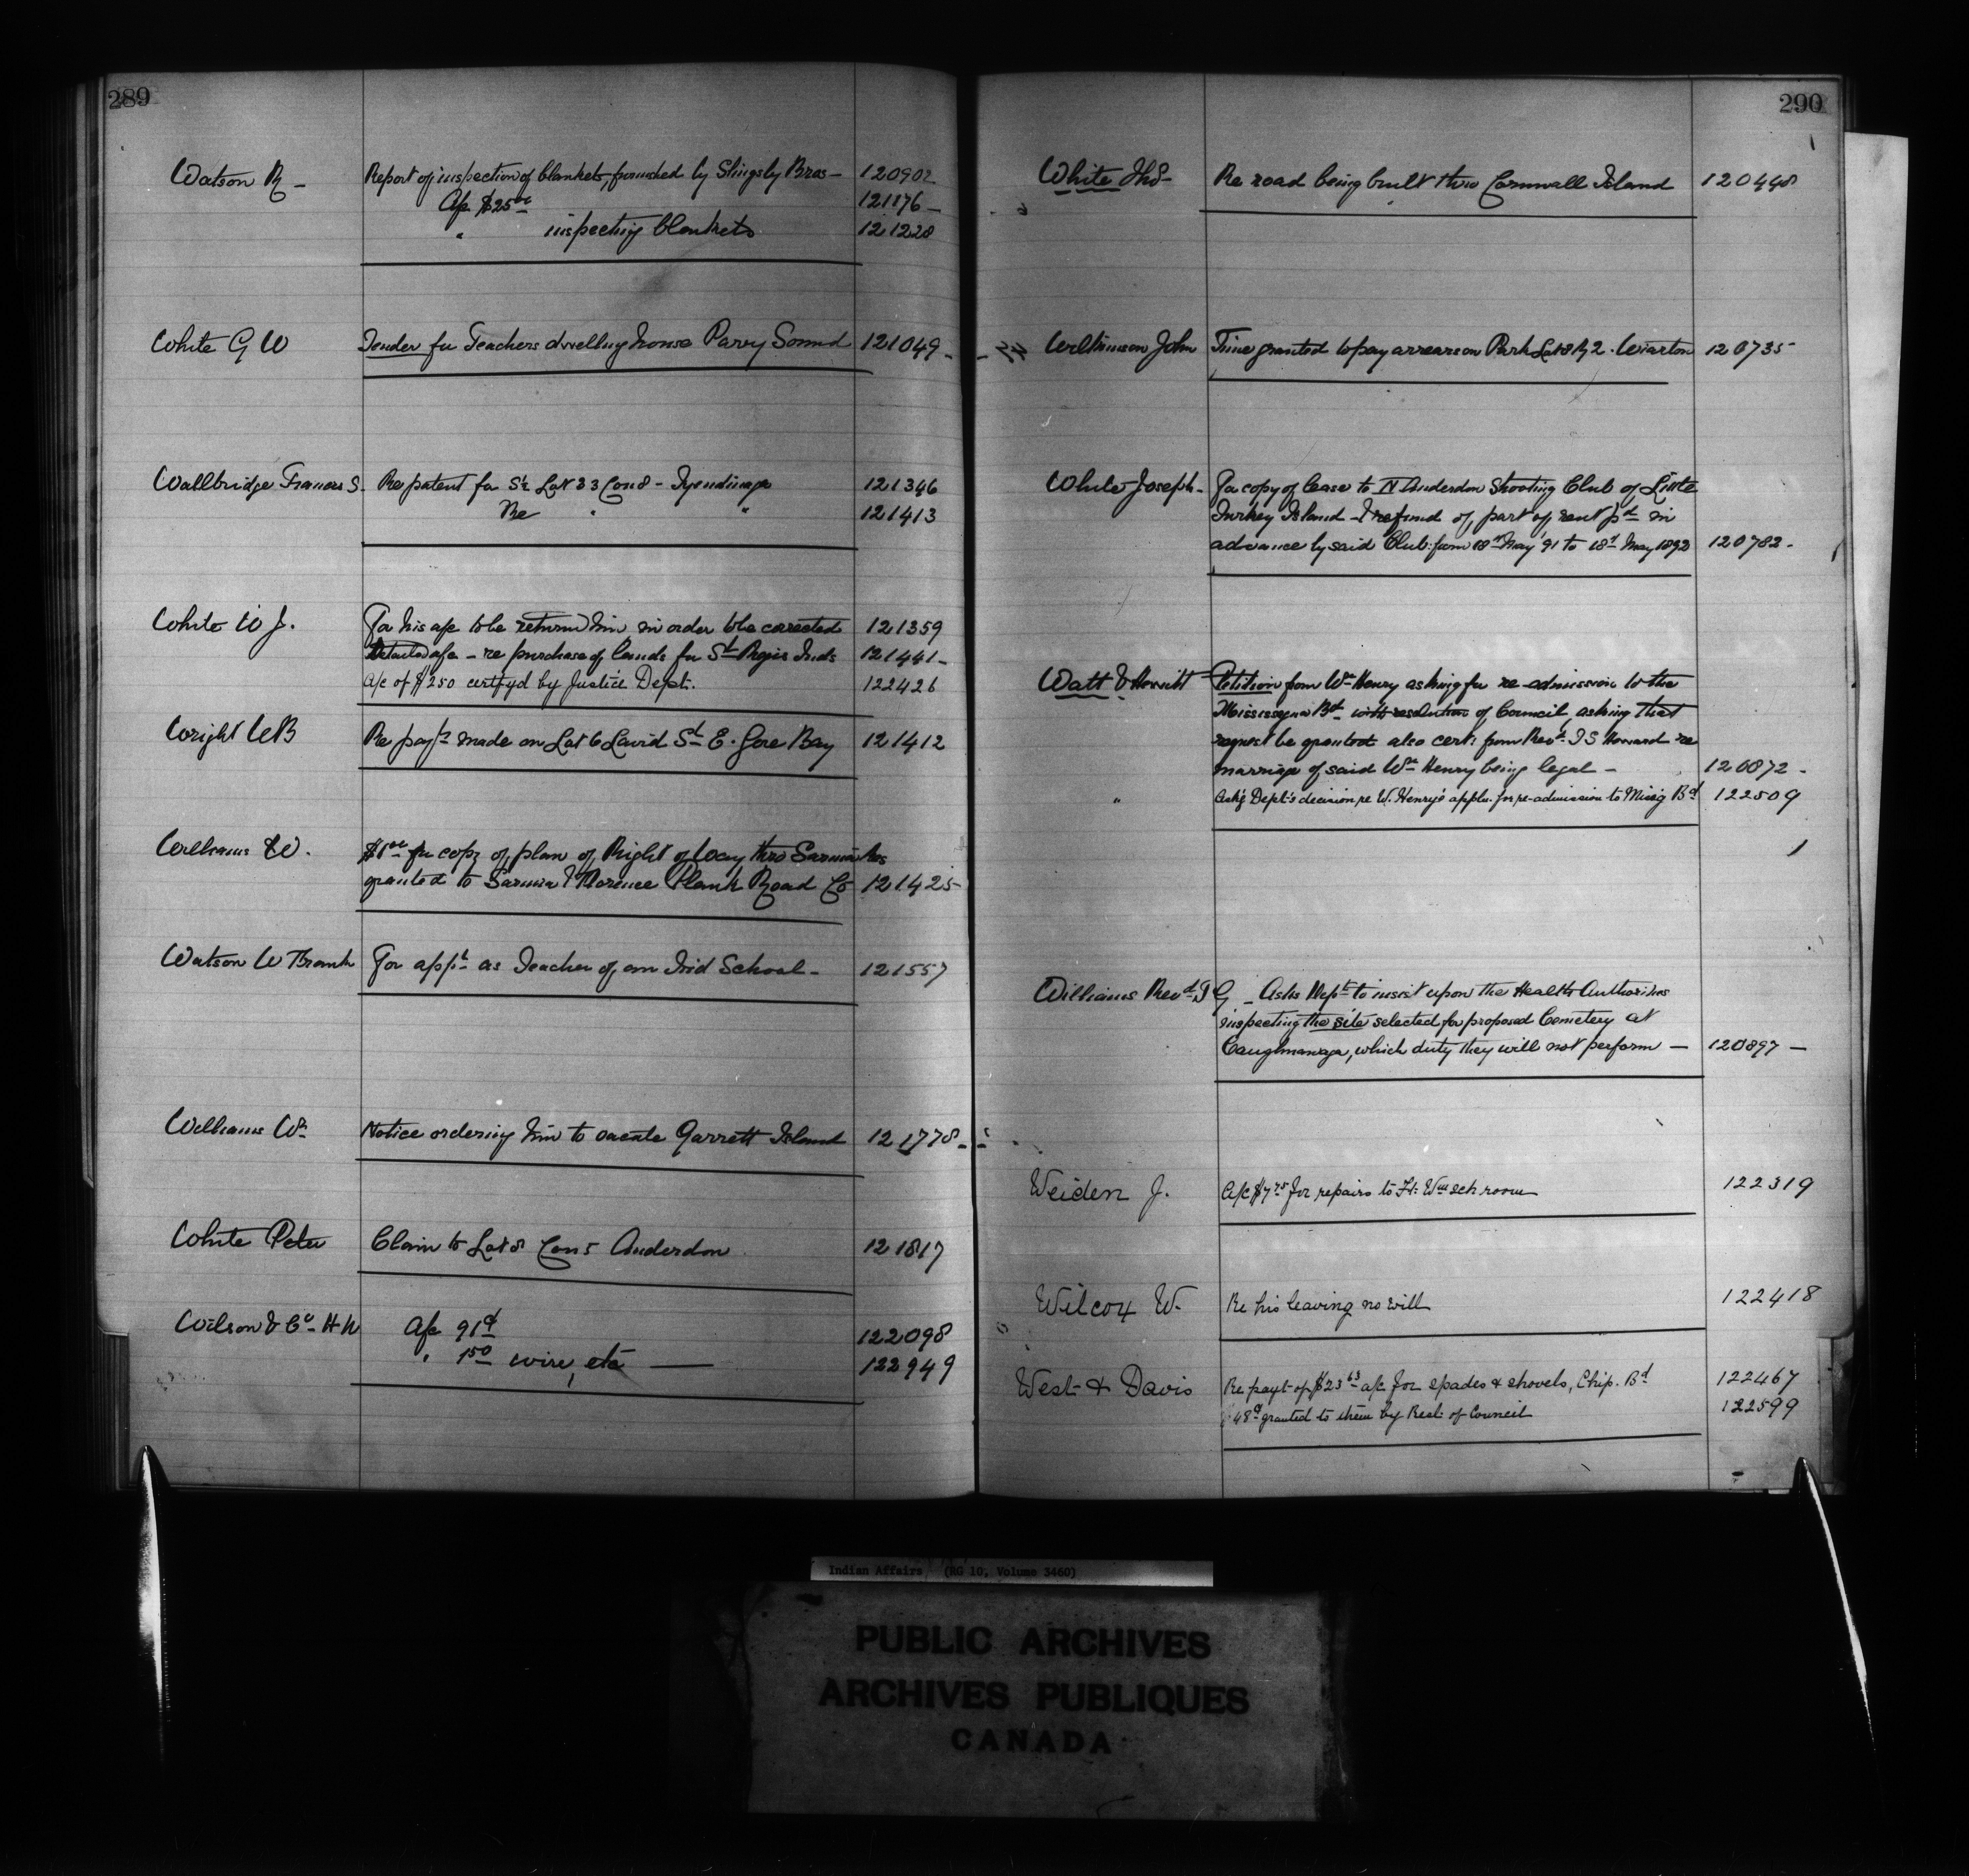 289
Watson R - Report of inspection of blankets, furnished by Slingsby Bros - 120902
A/c $25.00 121176 -
" inspecting blankets 121228
White G W Tender for Teachers dwelling house Parry Sound 121049 -
Wallbridge Frances S. Re patent for S½ Lot 33 Con 8 - Tyendinaga 121346
Re " " 121413
White W J. For his a/c to be returned him in order to be corrected 121359
Detailed a/c - re purchase of lands for St Regis Inds 121441 -
A/c of $250 certfyd by Justice Dept. 122426
Wright W B Re payt made on Lot 6 David St E. Gore Bay 121412
Williams W. $1.00 for copy of plan of Right of Way thro Sarnia Res
granted to Sarnia & Florence Plank Road Co 121425 -
Watson W Frank For appt as Teacher of an Ind School - 121557
Williams Wm Notice ordering him to vacate Garrett Island 121778 -
White Peter Claim to Lot 8 Con 5 Anderdon 121817
Wilson & Co H N A/c 91¢ 122098
" 1.50 wire, etc — 122949
290
White Thos - Re road being built thro Cornwall Island 120448
Wilkinson John Time granted to pay arrears on Park Lot 8 R 2. Wiarton 120735
White Joseph - For copy of lease to N Anderdon Shooting Club of Little
Turkey Island - & refund of part of rent pd in
advance by said Club from 18th May '91 to 18th May 1892 120782 -
Watt & Hewitt Petition from Wm Henry asking for re-admission to the
Mississagua Bd with resolution of Council, asking that
request be granted also cert. from Revd. T S Howard re
marriage of said Wm Henry being legal - 120872 -
" Ask'g Dept's decision re W. Henry's appln. for re-admission to Miss'g Bd 122509
Williams Revd. J G - Asks Dept to insist upon the Health Authorities
inspecting the site selected for proposed Cemetery at
Caughnawaga, which duty they will not perform — 120897 —
Weiden J. A/c $7.75 for repairs to Ft. Wm sch room 122319
Wilcox W. Re his leaving no will 122418
West & Davis Re payt of $23.63 a/c for spades & shovels, Chip. Bd 122467
48¢ granted to them by Resl. of Council 122599
Indian Affairs (RG 10, Volume 3460)
PUBLIC ARCHIVES
ARCHIVES PUBLIQUES
CANADA